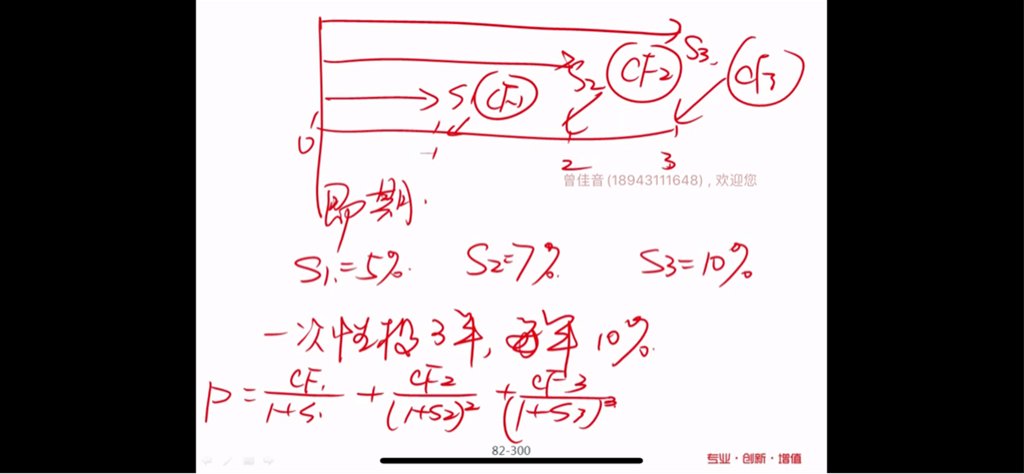 S3
S2 CF2 CF3
S1 CF1
0 1 2 3
曾佳音(18943111648),欢迎您
即期.
S1=5%. S2=7%. S3=10%
一次性投3年,每年10%.
P=CF1/(1+S1)+CF2/(1+S2)²+CF3/(1+S3)³
82-300
专业·创新·增值